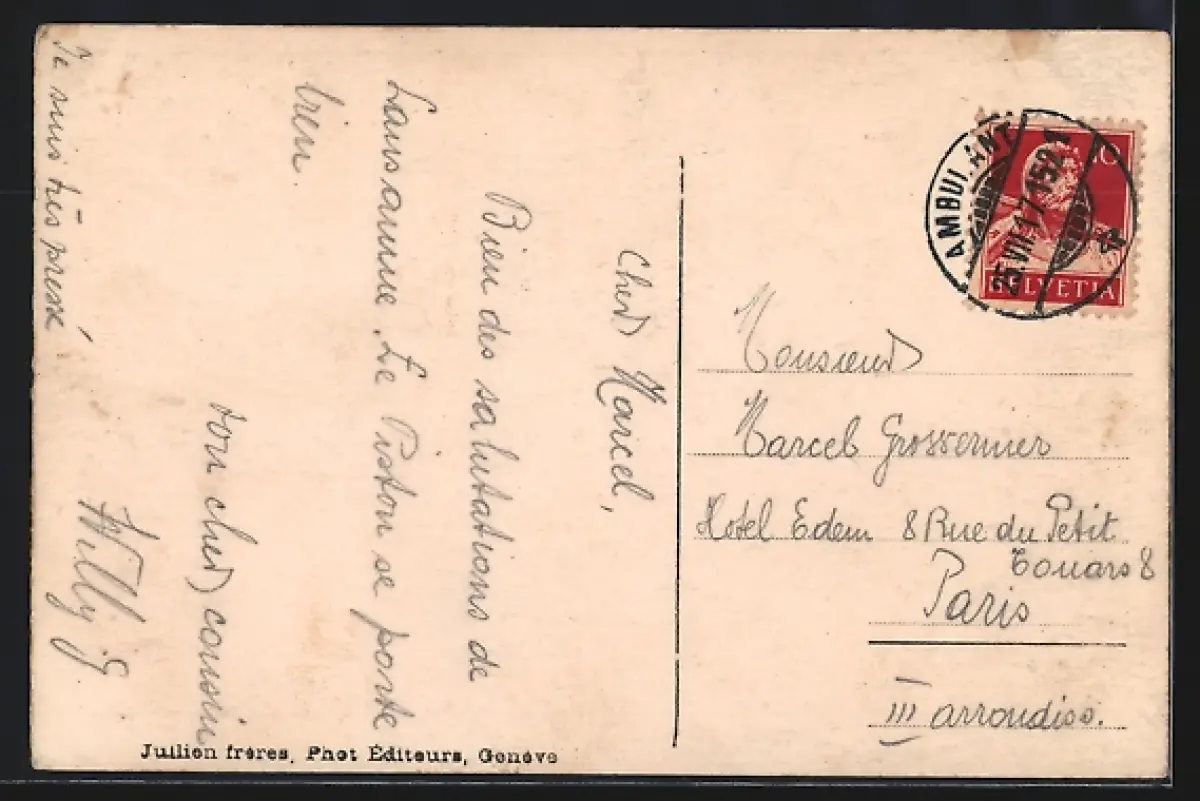 Cher Marcel,
Bien des salutations de
Lausanne. Le Piston se porte
bien.
ton cher cousin
Willy G
Je suis très pressé
Jullien frères, Phot Éditeurs, Genève
AMBULANT
25.VII.17.1521
10
HELVETIA
Monsieur
Marcel
Hotel Edem 8 Rue du Petit
Touars 8
Paris
III arrondiss.